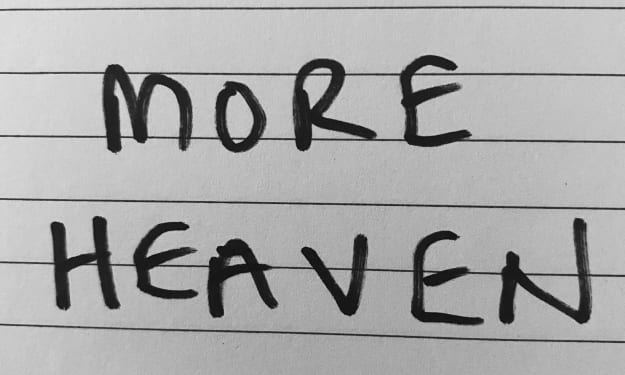 MORE
HEAVEN